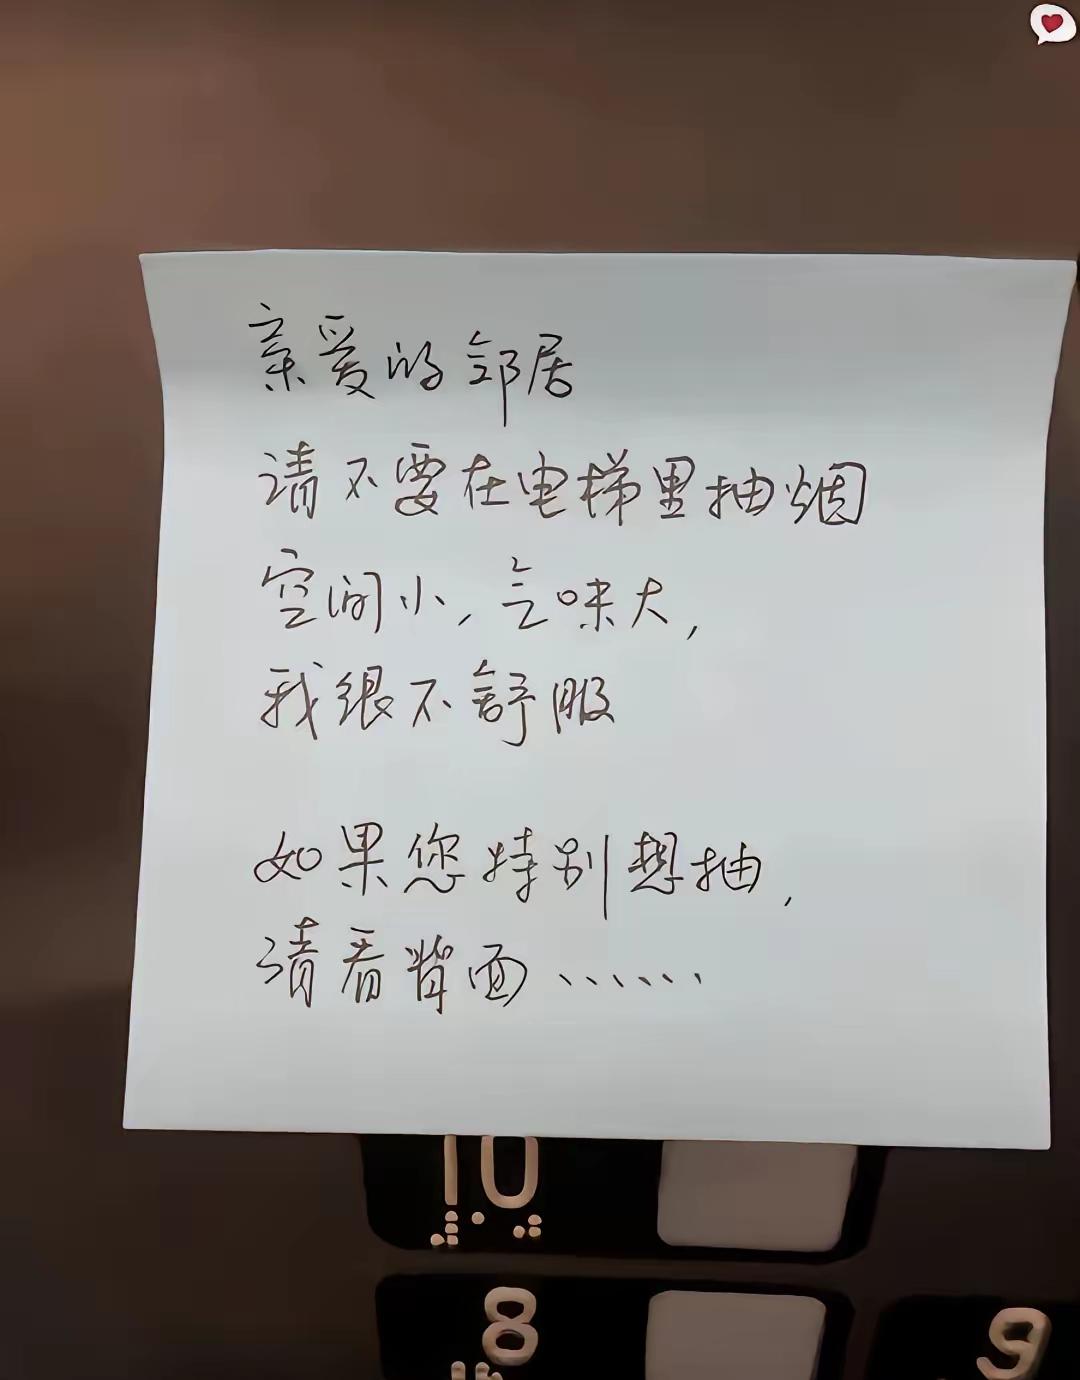 亲爱的邻居
请不要在电梯里抽烟
空间小，气味大，
我很不舒服
如果您特别想抽，
请看背面……
10
8
9